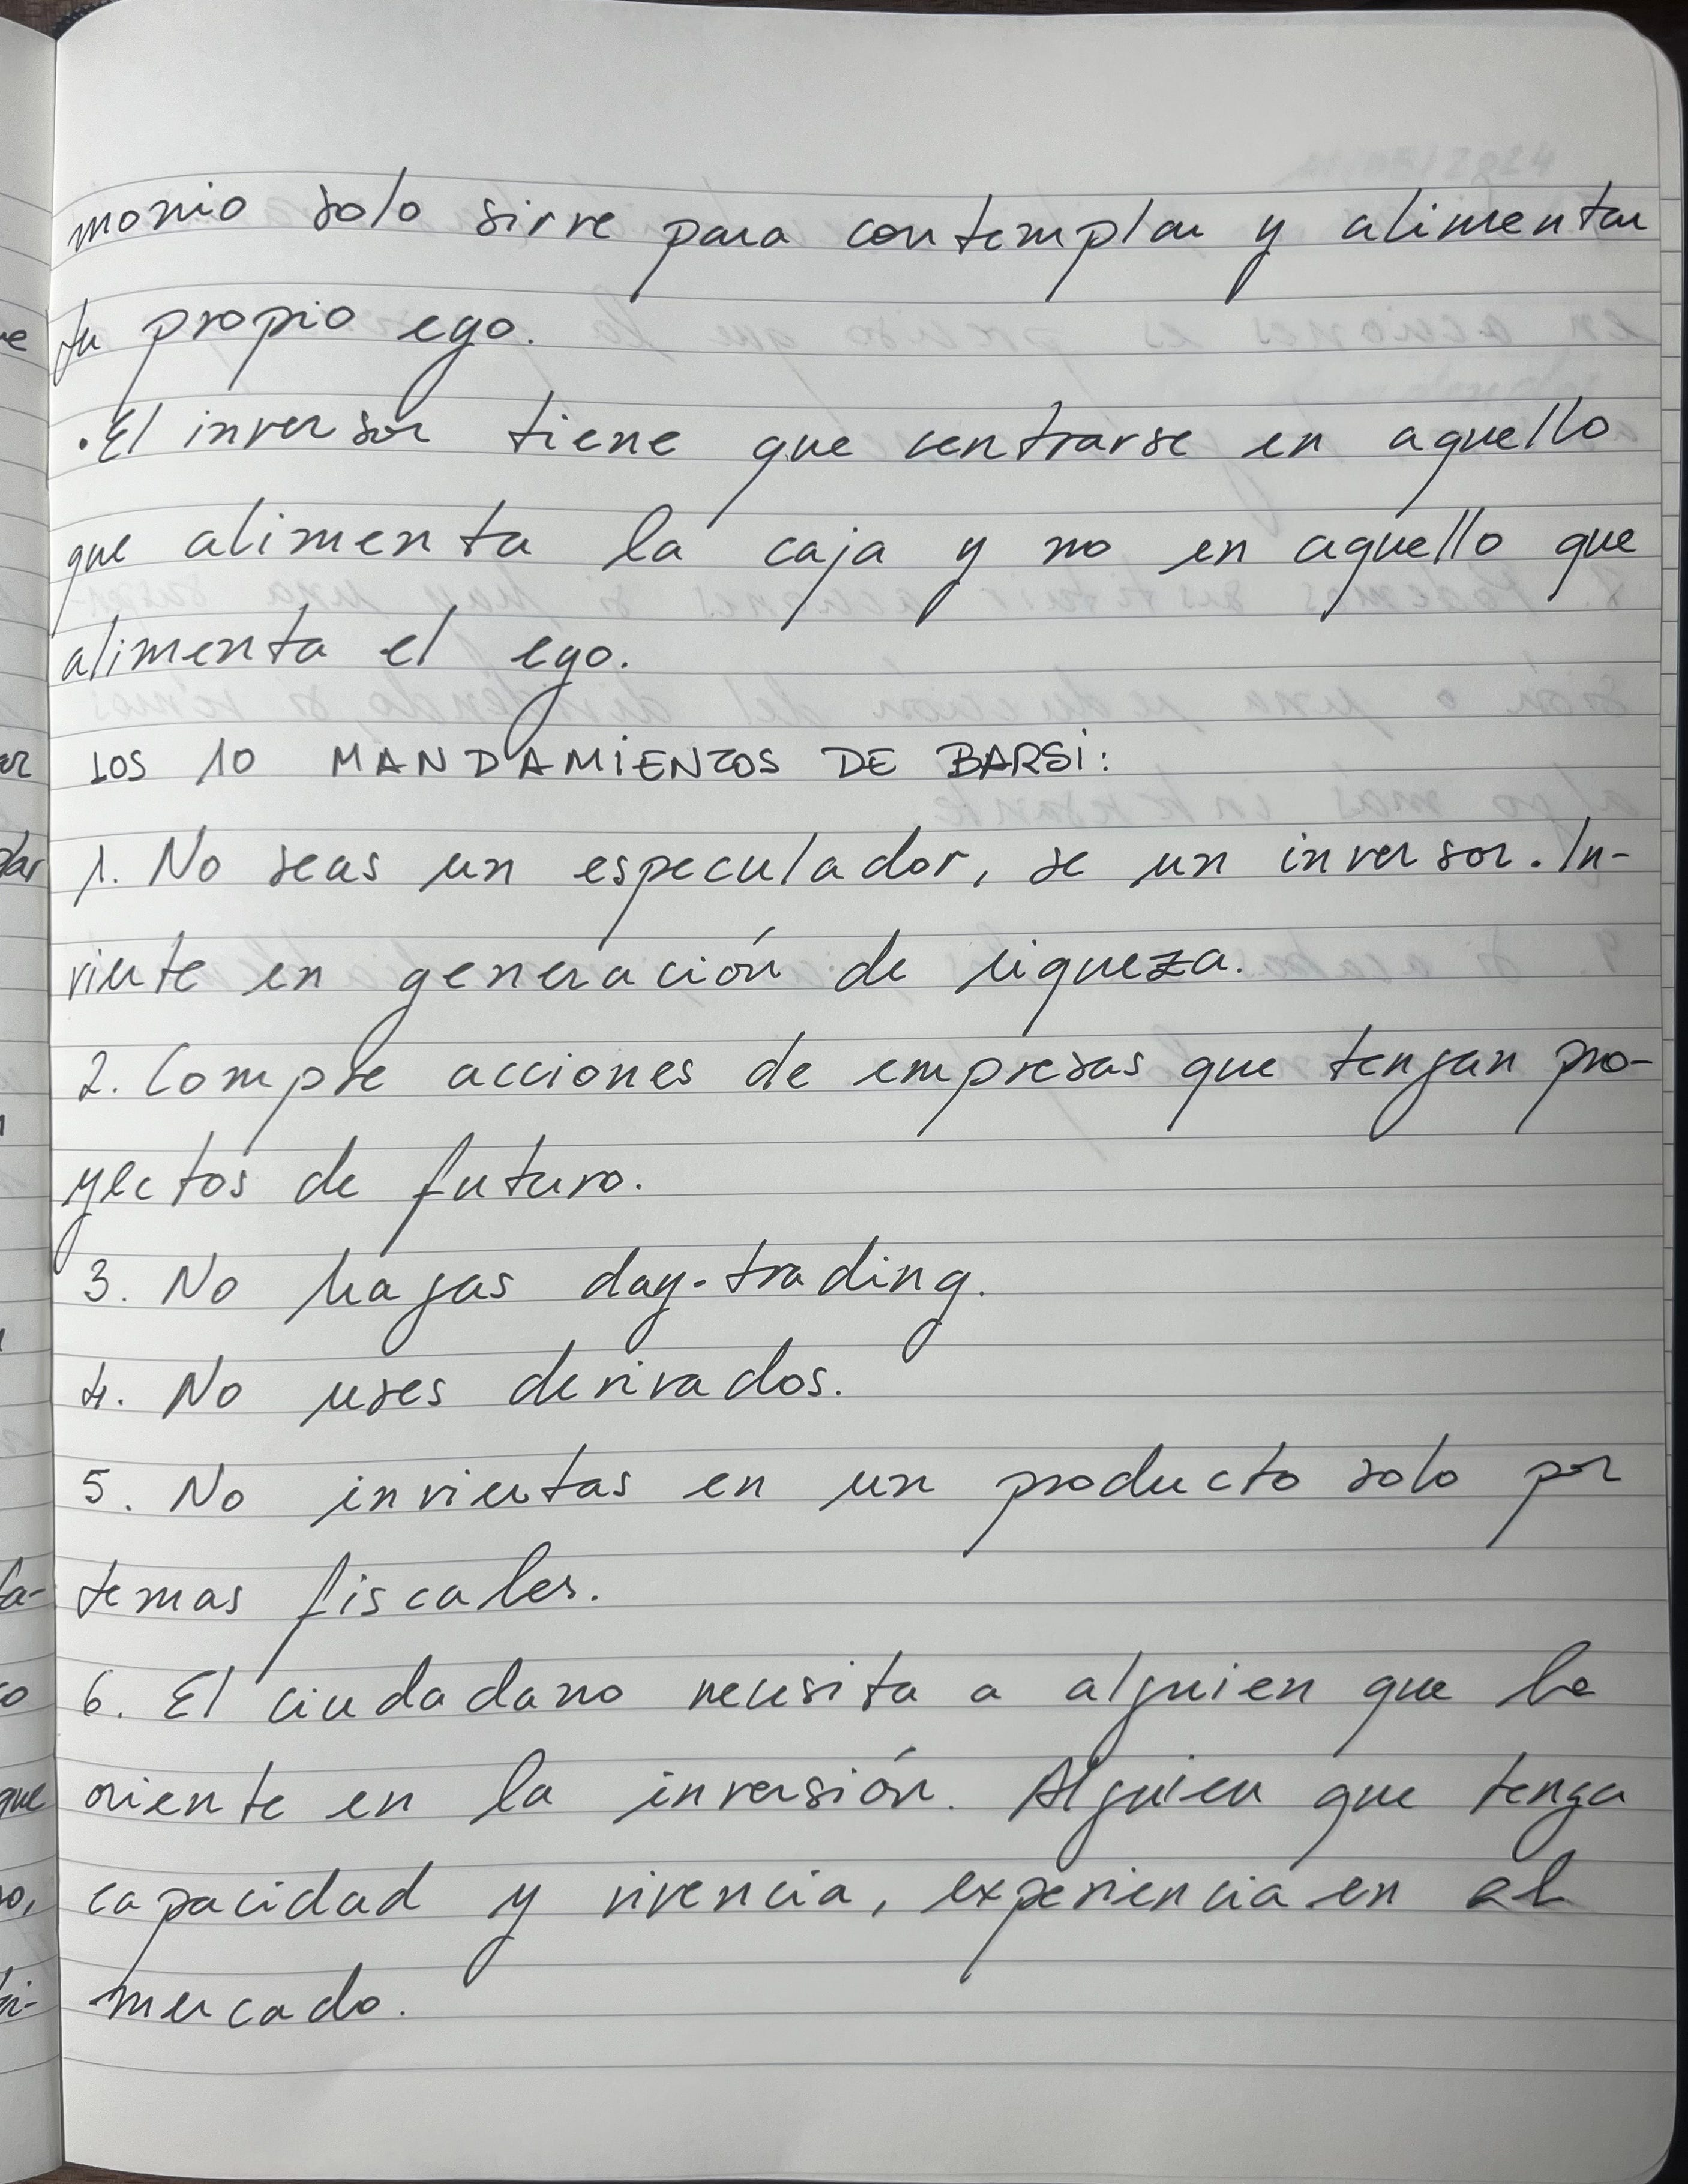 monio solo sirve para contemplar y alimentar
tu propio ego.
• El inversor tiene que centrarse en aquello
que alimenta la caja y no en aquello que
alimenta el ego.
LOS 10 MANDAMIENTOS DE BARSI:
1. No seas un especulador, se un inversor. In-
vierte en generación de riqueza.
2. Compre acciones de empresas que tengan pro-
yectos de futuro.
3. No hagas day-trading.
4. No uses derivados.
5. No inviertas en un producto solo por
temas fiscales.
6. El ciudadano necesita a alguien que le
oriente en la inversión. Alguien que tenga
capacidad y vivencia, experiencia en el
mercado.